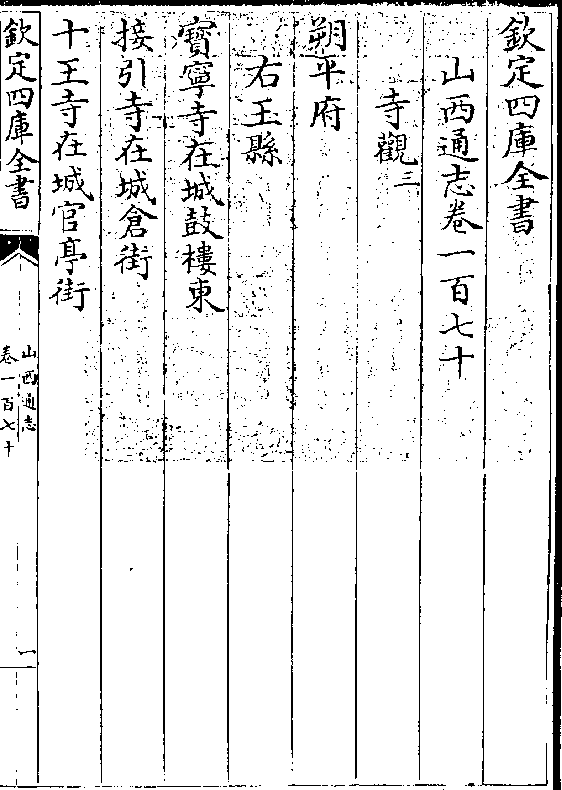 欽定四庫全書
山西通志卷一百七十
寺觀三
朔平府
右玉縣
寳寧寺在城鼓樓東
接引寺在城倉街
十王寺在城官亭街
欽定四庫全書
山西通志
卷一百七十
一